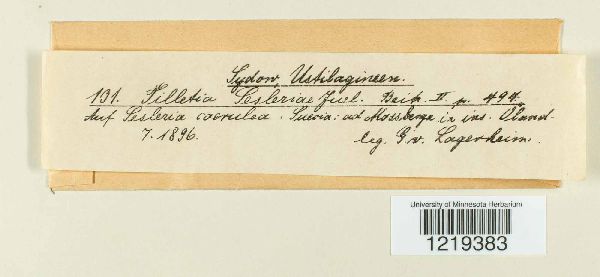 Sydow, Ustilagineen.
131. Tilletia Sesleriae Juel. Beitr. II p. 494.
Auf Sesleria coerulea. Suecia: ad Mossberga in ins. Öland.
7. 1896. leg. G. v. Lagerheim.
University of Minnesota Herbarium
1219383